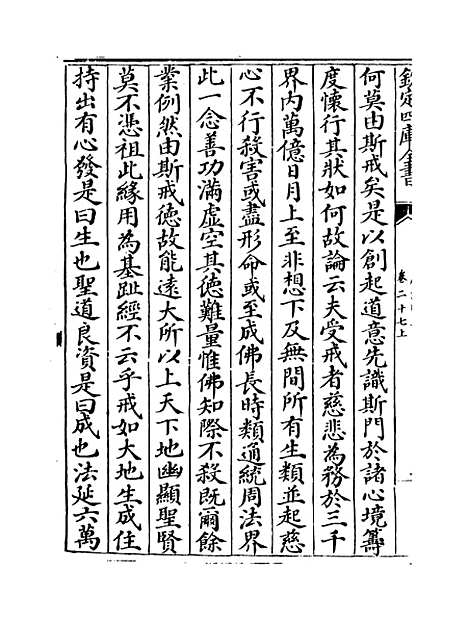 欽定四庫全書
卷二十七上
何莫由斯戒矣是以創起道意先識斯門於諸心境籌
度懷行其狀如何故論云夫受戒者慈悲為務於三千
界内萬億日月上至非想下及無間所有生類並起慈
心不行殺害或盡形命或至成佛長時類通統周法界
此一念善功滿虛空其德難量惟佛知際不殺既爾餘
業例然由斯戒德故能遠大所以上天下地幽顯聖賢
莫不憑祖此緣用為基趾經不云乎戒如大地生成住
持出有心發是曰生也聖道良資是曰成也法延六萬